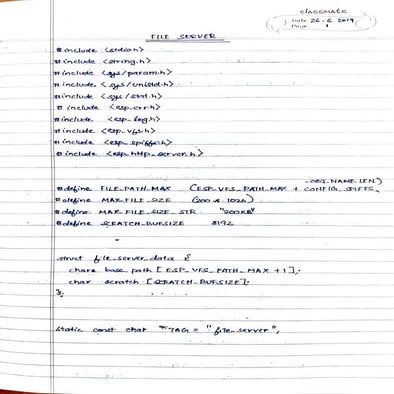 classmate
Date 26-6-2019
Page 1
FILE SERVER
#include <stdio.h>
#include <string.h>
#include <sys/param.h>
#include <sys/unistd.h>
#include <sys/stat.h>
#include <esp_err.h>
#include <esp_log.h>
#include <esp_vfs.h>
#include <esp_spiffs.h>
#include <esp_http_server.h>
#define FILE_PATH_MAX (ESP_VFS_PATH_MAX + CONFIG_SPIFFS_
OBJ_NAME_LEN)
#define MAX_FILE_SIZE (200 * 1024)
#define MAX_FILE_SIZE_STR "200KB"
#define SCRATCH_BUFSIZE 8192
struct file_server_data {
chare base path [ESP_VFS_PATH_MAX + 1];
char scratch [SCRATCH_BUFSIZE];
};
static const char *TAG = "file_server";